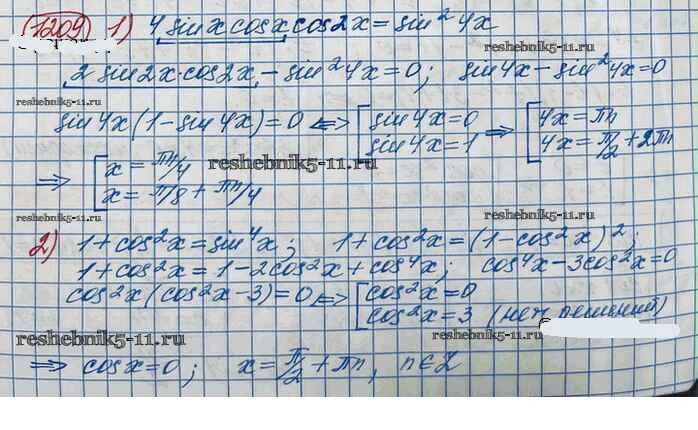 1209 1) 4 sinx cosx cos2x = sin² 4x
reshebnik5-11.ru
2 sin2x·cos2x - sin²4x = 0; sin4x - sin²4x = 0
reshebnik5-11.ru reshebnik5-11.ru
sin4x(1 - sin4x) = 0 <=> [sin4x = 0 => [4x = πn
sin4x = 1 4x = π/2 + 2πn
reshebnik5-11.ru
=> [x = πn/4
x = π/8 + πn/4
reshebnik5-11.ru reshebnik5-11.ru
2) 1 + cos²x = sin⁴x; 1 + cos²x = (1 - cos²x)²;
1 + cos²x = 1 - 2cos²x + cos⁴x; cos⁴x - 3cos²x = 0
cos²x(cos²x - 3) = 0 <=> [cos²x = 0
cos²x = 3 (нет решений)
reshebnik5-11.ru
reshebnik5-11.ru
=> cosx = 0; x = π/2 + πn, n∈Z